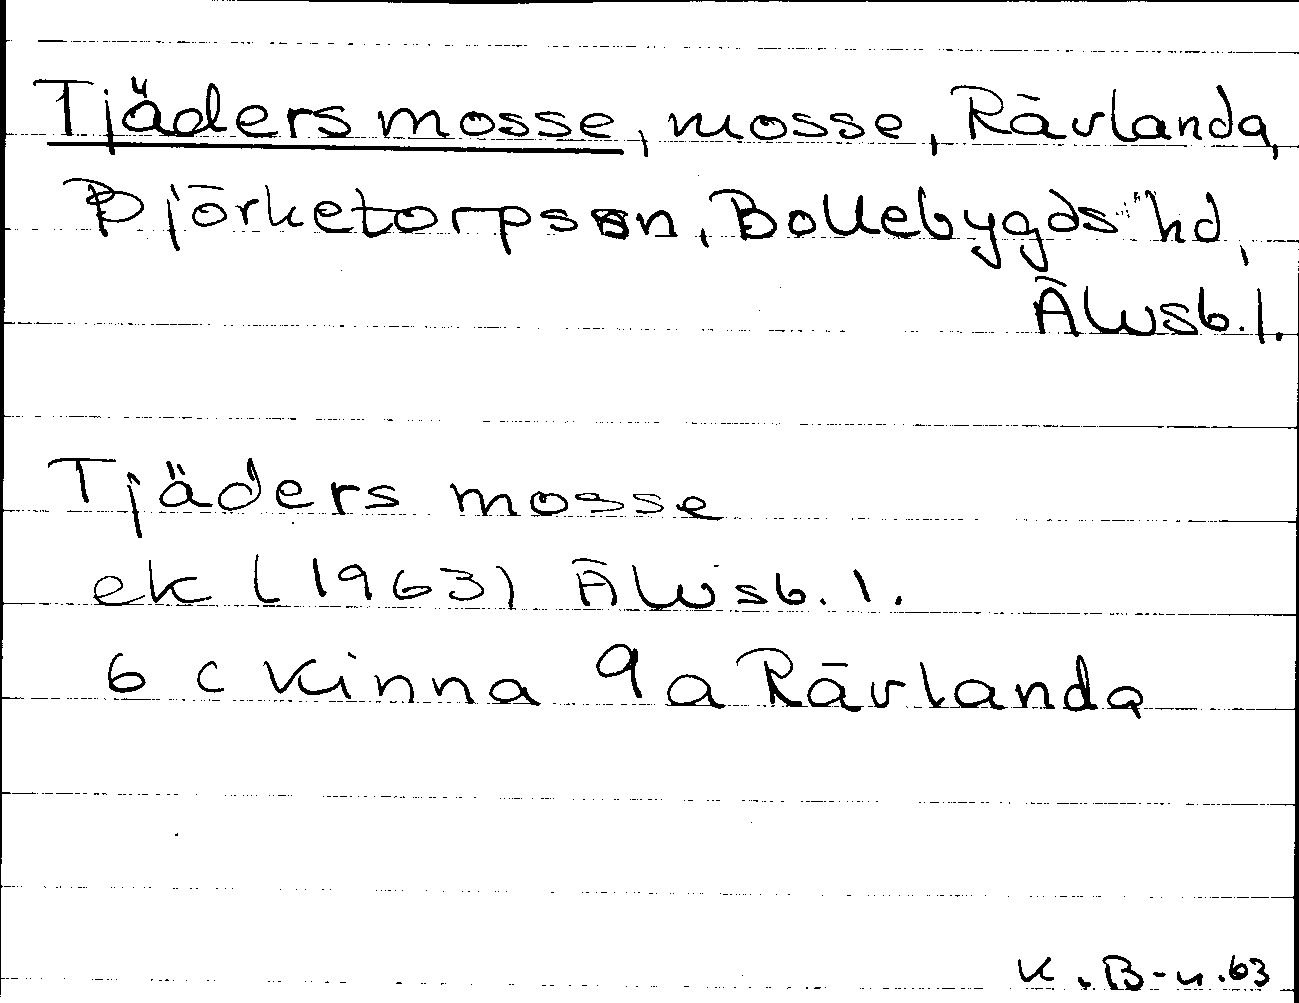 Tjäders mosse, mosse, Rävlanda,
Björketorps sn, Bollebygds hd,
Älvsb. l.
Tjäders mosse
ek (1963) Älvsb. l.
6 c Kinna 9a Rävlanda
K. B-n. 63